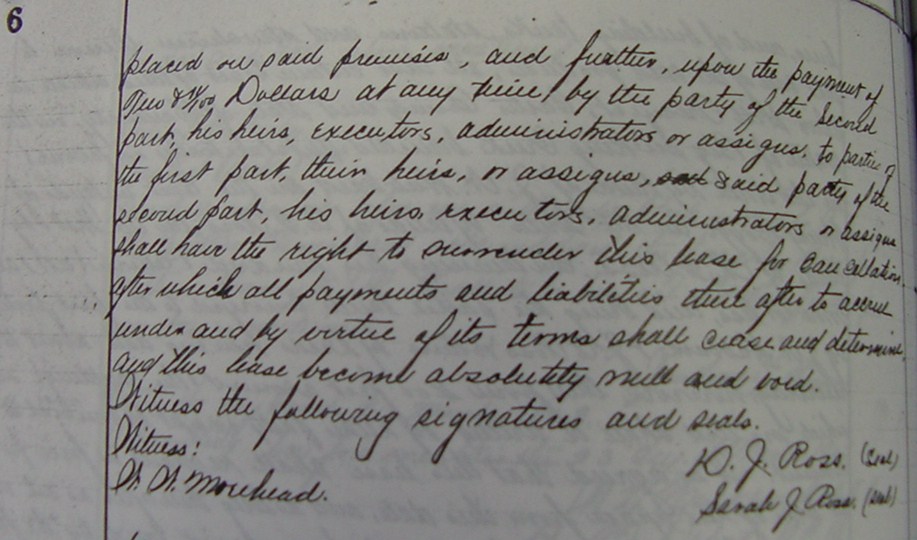 6
placed on said premises, and further, upon the payment of
& /100 Dollars at any time by the party of the Second
part, his heirs, executors, administrators or assigns, to parties of
the first part, their heirs, or assigns, said party of the
second part, his heirs, executors, administrators or assigns
shall have the right to surrender this lease for cancellation,
after which all payments and liabilities there after to accrue
under and by virtue of its terms shall cease and determine,
and this lease become absolutely null and void.
Witness the following signatures and seals.
Witness:
D. J. Ross. (Seal)
Morehead.
Sarah J Ross. (Seal)